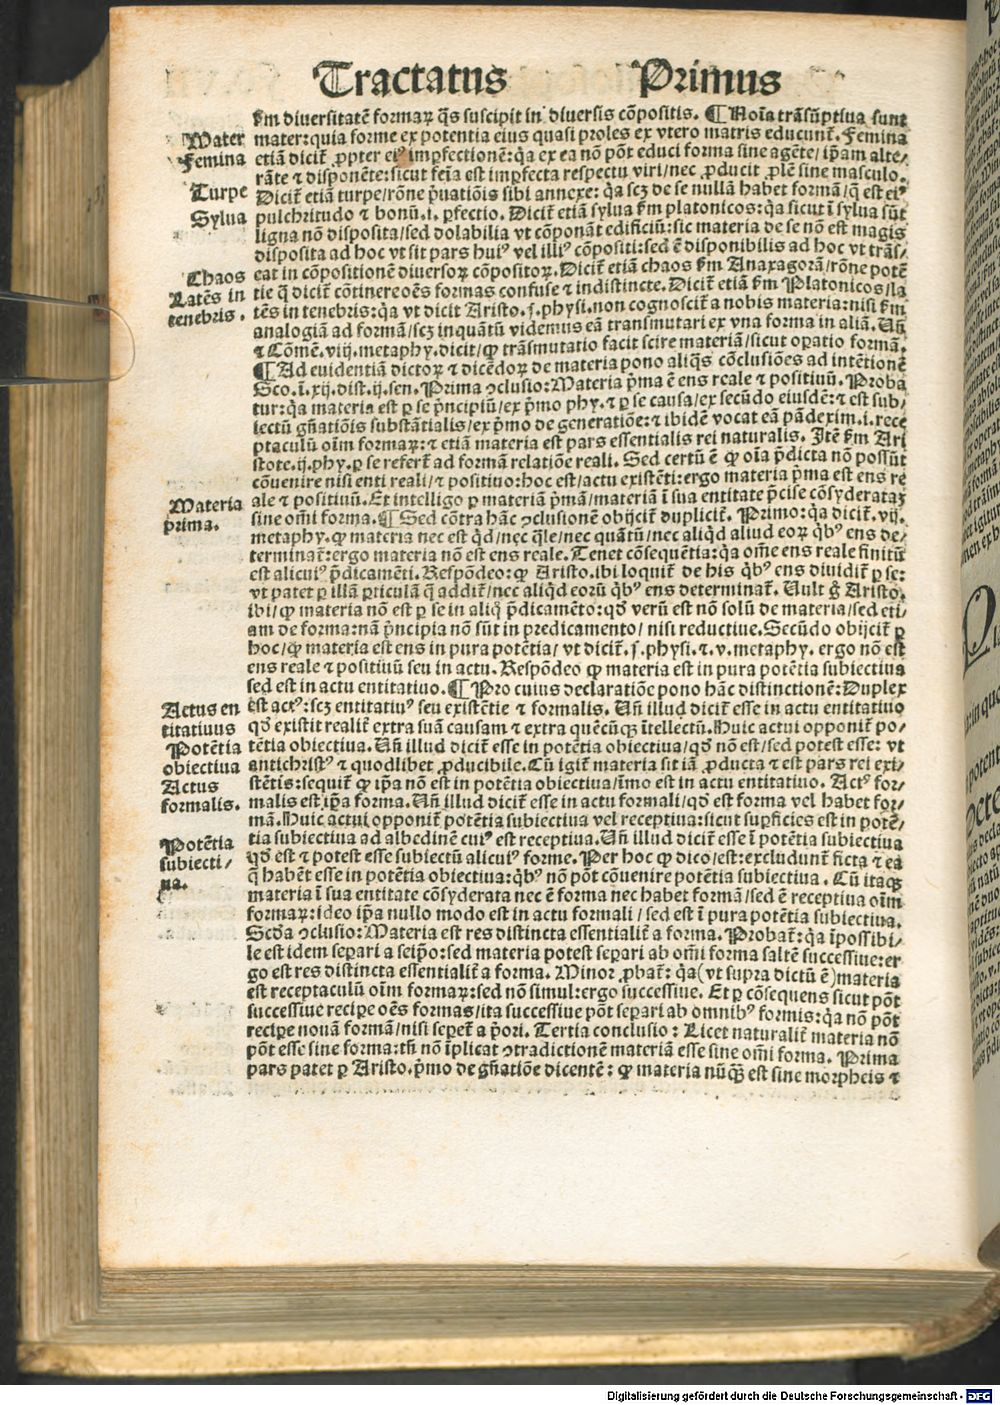 Tractatus Primus
ẜm diuersitatē formaꝝ q̄s suscipit in diuersis cōpositis. ¶ Noīa trāsūptiua sunt
Mater
mater:quia forme ex potentia eius quasi proles ex vtero matris educunt̄. Femina
Femina
etiā dicit̄ ꝓpter eiꝰ imꝑfectionē:q̇a ex ea nō pōt educi forma sine agēte/ ip̄am alte/
rāte ⁊ disponēte:sicut feīa est imꝑfecta respectu viri/nec ꝓducit ꝓlē sine masculo.
Turpe
Dicit̄ etiā turpe/rōne p̄uatiōis sibi annexe: q̇a scꝫ de se nullā habet formā/q̄ est eiꝰ
Sylua
pulchritudo ⁊ bonū.i. ꝑfectio. Dicit̄ etiā sylua ẜm platonicos:q̇a sicut ī sylua sūt
ligna nō disposita/sed dolabilia vt cōponāt edificiū:sic materia de se nō est magis
disposita ad hoc vt sit pars huiꝰ vel illiꝰ cōpositi:sed ē disponibilis ad hoc vt trās/
Chaos
eat in cōpositionē diuersoꝝ cōpositoꝝ. Dicit̄ etiā chaos ẜm Anaxagorā/rōne potē
Latēs in
tie q̄ dicit̄ cōtinere oēs formas confuse ⁊ indistincte. Dicit̄ etiā ẜm Platonicos/la
tenebris.
tēs in tenebris:q̇a vt dicit Aristo.j.physi.non cognoscit̄ a nobis materia:nisi ẜm
analogiā ad formā/scꝫ inquātū videmus eā transmutari ex vna forma in aliā. Un̄
⁊ Cōmē.viij.metaphy.dicit/ꝙ trāsmutatio facit scire materiā/sicut oꝑatio formā.
¶ Ad euidentiā dictoꝝ ⁊ dicēdoꝝ de materia pono aliq̄s cōclusiōes ad intētionē
Sco.ī.xij.dist.ij.sen. Prima ꝯclusio:Materia p̄ma ē ens reale ⁊ positiuū. Proba
tur:q̇a materia est ꝑ se p̄ncipiū/ex p̄mo phy.⁊ ꝑ se causa/ex secūdo eiusdē:⁊ est sub/
iectū gn̄atiōis substātialis/ex p̄mo de generatiōe:⁊ ibidē vocat eā pādexim.i.rece
ptaculū oīm formaꝝ:⁊ etiā materia est pars essentialis rei naturalis. Itē ẜm Ari
stote.ij.phy.ꝑ se refert̄ ad formā relatiōe reali. Sed certū ē ꝙ oīa p̄dicta nō possūt
cōuenire nisi enti reali/⁊ positiuo:hoc est/actu existēti:ergo materia p̄ma est ens re
Materia
ale ⁊ positiuū. Et intelligo ꝑ materiā p̄mā/materiā ī sua entitate p̄cise cōsyderatā
prima.
sine om̄i forma.¶ Sed cōtra hāc ꝯclusionē obijcit̄ duplicit̄. Primo:q̇a dicit̄.vij.
metaphy.ꝙ materia nec est q̇d/nec q̄le/nec quātū/nec aliq̇d aliud eoꝝ q̇bꝰ ens de/
terminat̄:ergo materia nō est ens reale. Tenet cōsequētia:q̇a om̄e ens reale finitū
est alicuiꝰ p̄dicamēti. Respōdeo:ꝙ Aristo.ibi loquit̄ de his q̇bꝰ ens diuidit̄ ꝑ se:
vt patet ꝑ illā ꝑticulā q̄ addit̄/nec aliq̇d eorū q̇bꝰ ens determinat̄. Uult g̊ Aristo.
ibi/ꝙ materia nō est ꝑ se in aliq̊ p̄dicamēto:qd̛ verū est nō solū de materia/sed eti/
am de forma:nā p̄ncipia nō sūt in predicamento/ nisi reductiue. Secūdo obijcit̄ ꝑ
hoc/ꝙ materia est ens in pura potētia/ vt dicit̄.j.physi.⁊.v.metaphy. ergo nō est
ens reale ⁊ positiuū seu in actu. Respōdeo ꝙ materia est in pura potētia subiectiua
sed est in actu entitatiuo.¶ Pro cuius declaratiōe pono hāc distinctionē:Duplex
Actus en
est actꝰ:scꝫ entitatiuꝰ seu existētie ⁊ formalis. Un̄ illud dicit̄ esse in actu entitatiuo
titatiuus
qd̛ existit realit̄ extra suā causam ⁊ extra quēcūqꝫ ītellectū. Huic actui opponit̄ po/
Potētia
tētia obiectiua. Un̄ illud dicit̄ esse in potētia obiectiua/qd̛ nō est/sed potest esse: vt
obiectiua
antichristꝰ ⁊ quodlibet ꝓducibile. Cū igit̄ materia sit iā ꝓducta ⁊ est pars rei exi/
Actus
stētis:sequit̄ ꝙ ip̄a nō est in potētia obiectiua/īmo est in actu entitatiuo. Actꝰ for/
formalis.
malis est ip̄a forma. Un̄ illud dicit̄ esse in actu formali/qd̛ est forma vel habet for/
mā. Huic actui opponit̄ potētia subiectiua vel receptiua:sicut suꝑficies est in potē/
Potētia
tia subiectiua ad albedinē cuiꝰ est receptiua. Un̄ illud dicit̄ esse ī potētia subiectiua
subiecti/
qd̛ est ⁊ potest esse subiectū alicuiꝰ forme. Per hoc ꝙ dico/est:excludunt̄ ficta ⁊ ea
ua.
q̄ habēt esse in potētia obiectiua:q̇bꝰ nō pōt cōuenire potētia subiectiua. Cū itaqꝫ
materia ī sua entitate cōsyderata nec ē forma nec habet formā/sed ē receptiua oīm
formaꝝ:ideo ip̄a nullo modo est in actu formali / sed est ī pura potētia subiectiua.
Scd̛a ꝯclusio:Materia est res distincta essentialit̄ a forma. Probat̄:q̇a īpossibi/
le est idem seꝑari a seip̄o:sed materia potest seꝑari ab om̄i forma saltē successiue:er
go est res distincta essentialit̄ a forma. Minor ꝓbat̄: q̇a (vt supra dictū ē) materia
est receptaculū oīm formaꝝ:sed nō simul:ergo successiue. Et ꝑ cōsequens sicut pōt
successiue reciꝑe oēs formas/ita successiue pōt seꝑari ab omnibꝰ formis:q̇a nō pōt
reciꝑe nouā formā/nisi seꝑet̄ a p̄ori. Tertia conclusio: Licet naturalit̄ materia nō
pōt esse sine forma:tn̄ nō īplicat ꝯtradictionē materiā esse sine om̄i forma. Prima
pars patet ꝑ Aristo.p̄mo de gn̄atiōe dicentē: ꝙ materia nūq̄ꝫ est sine morpheis ⁊
Digitalisierung gefördert durch die Deutsche Forschungsgemeinschaft - DFG